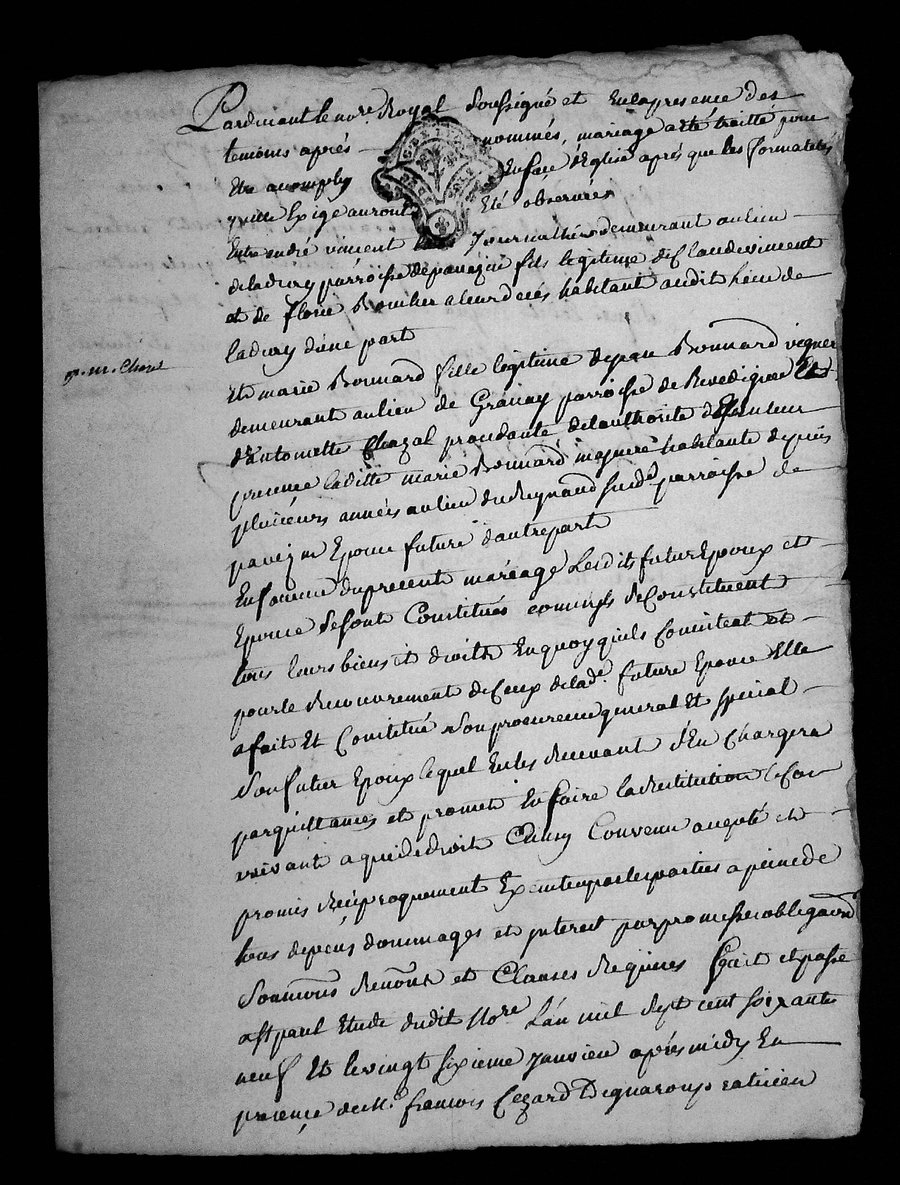 Pardevant le nore Royal soussigné et en la presence des
temoins aprés nommés, mariage a eté traitté pour
etre acomply en face d'Eglise aprés que les formalités
quille Exige auront Eté observées
Entre andré vincent Journallier demeurant au lieu
deladury parroisse de fils legitime de Claude vincent
et de florie Boucher a leur decés habitant audit lieu de
ladury d'une part
Et marie Bonnard fille legitime de jean Bonnard vigner
demeurant au lieu de Granay parroisse de Et
d'antoinette Chazal procedante de l'authorité
presence laditte marie Bonnard majeure habitante depuis
plusieurs années au lieu du Reynaud susde parroisse de
Epouse future d'autre part
En faveur du present mariage Lesdits futur Epoux et
Epouse se sont Constitués comme ils se Constituent
tous leurs biens et droits En quoy quils Consistent et
pour le Recouvrement de Ceux de lade future Epouse Elle
a fait Et Constitué son procureur general Et spécial
son futur Epoux lequel En les Recevant s'En Chargera
par quittances et promet En faire la Restitution le Cas
avivant a qui de droit Ainsy Convenu accepté et
promis Réciproquement Executer par les parties a peine de
tous depens dommages et jnterest par promesse obligaons
Soumions Renons et Clauses Requises fait et passé
a St paul Etude dudit Nore L'an mil sept cent soixante
neuf Et le vingt sixieme janvier aprés midy En
presence de Me francois Cezard praticien